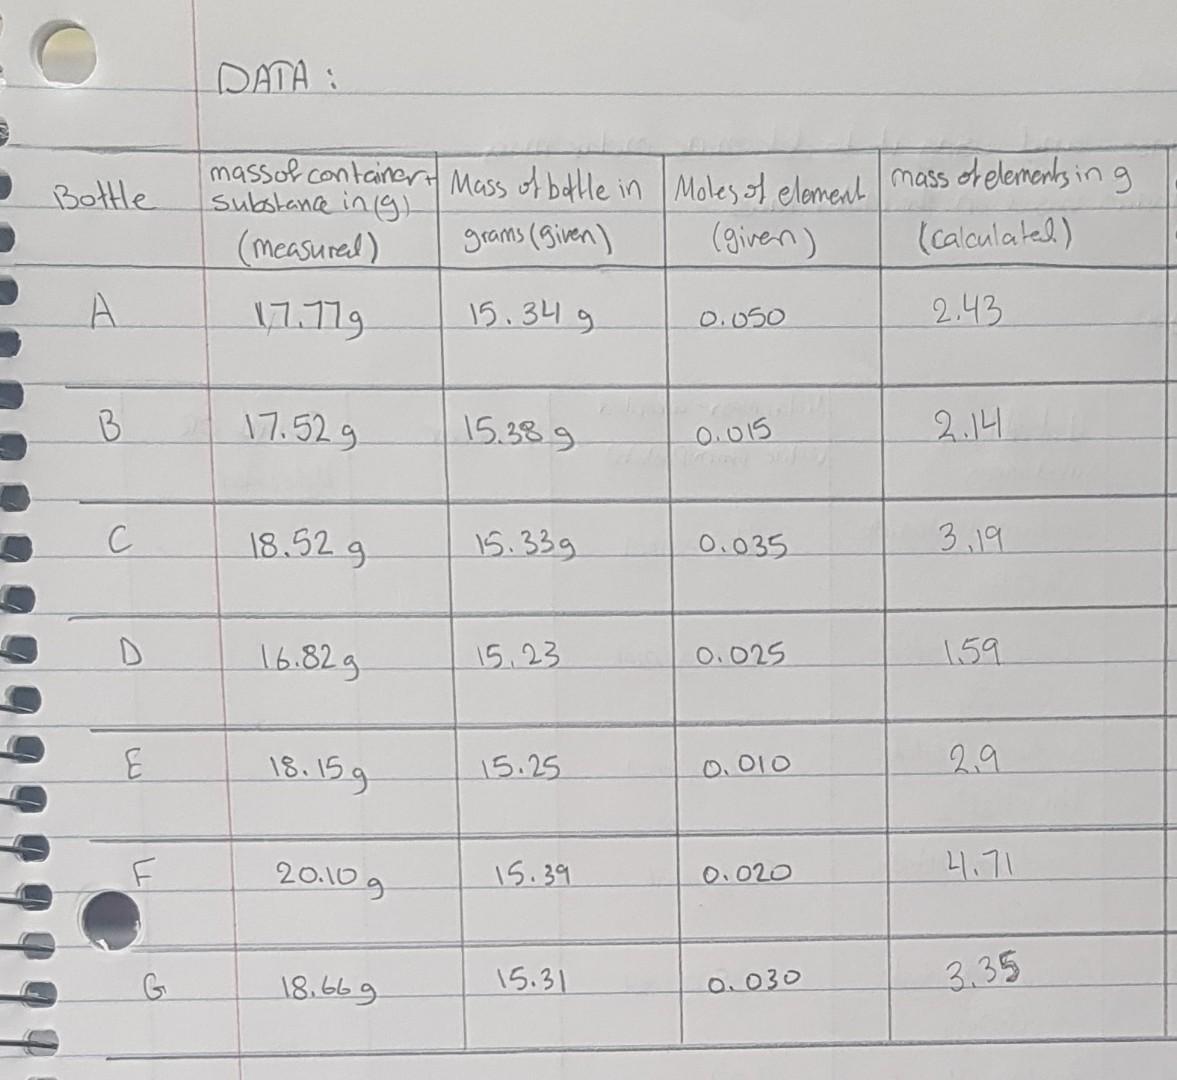 DATA :
Bottle
mass of container +
substance in (g)
(measured)
Mass of bottle in
grams (given)
Moles of element
(given)
mass of elements in g
(calculated)
A 17.77g 15.34 g 0.050 2.43
B 17.52 g 15.38 g 0.015 2.14
C 18.52 g 15.33g 0.035 3.19
D 16.82 g 15.23 0.025 1.59
E 18.15 g 15.25 0.010 2.9
F 20.10 g 15.39 0.020 4.71
G 18.66 g 15.31 0.030 3.35